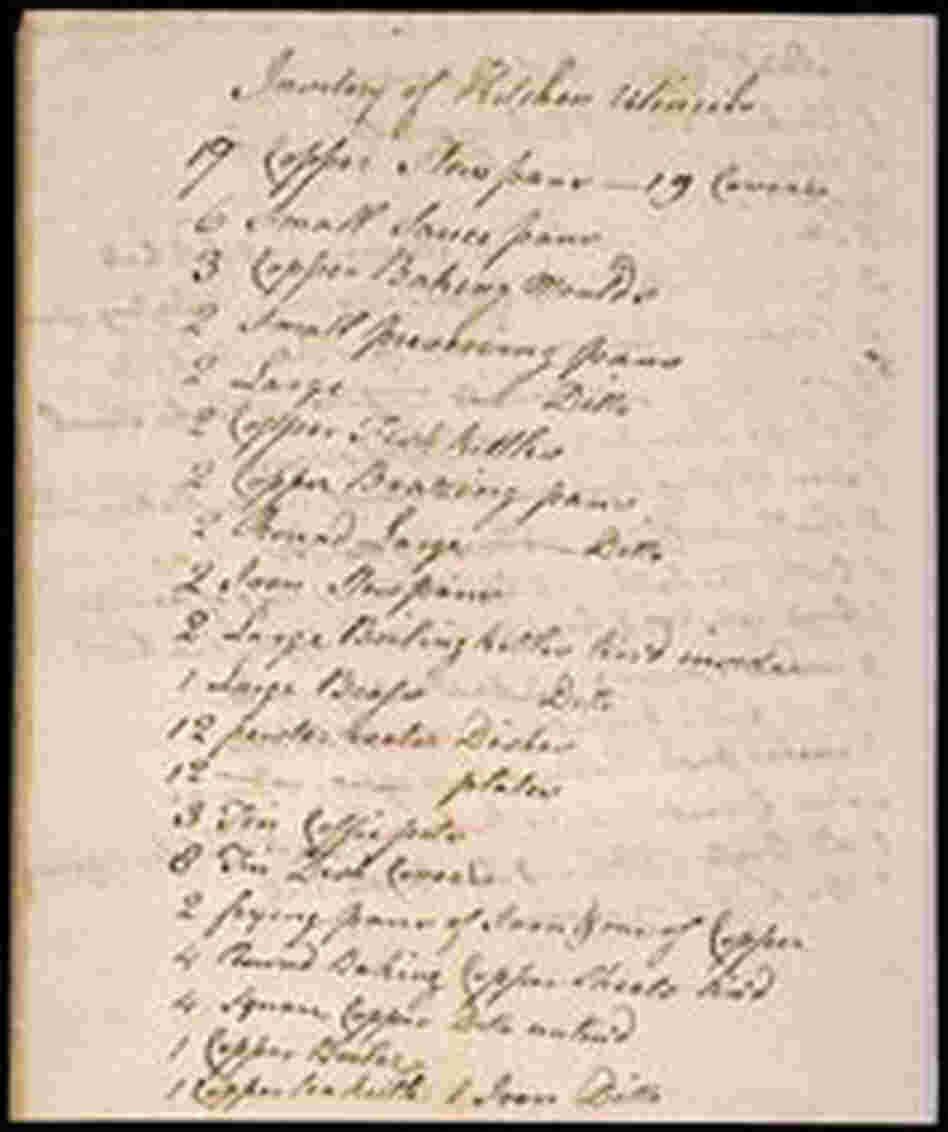 Inventory of Kitchen Utincils
19 Copper Stewpans — 19 Covers
6 Small Sauce pans
3 Copper Baking Moulds
2 Small preserving pans
2 Large — — Ditto
2 Copper Fish kettles
2 Copper Brazing pans
2 Round Large — Ditto
2 Iron Stewpans
2 Large Boiling kettles tin'd inside
1 Large Brass — Ditto
12 pewter water Dishes
12 — — plates
3 Tin Coffie pots
8 Tin Dish Covers
2 frying pans of Iron & one of Copper
4 Round Baking Copper Sheets tin'd
4 Square Copper Ditto untin'd
1 Copper Boiler
1 Copper tea kettle 1 Iron Ditto